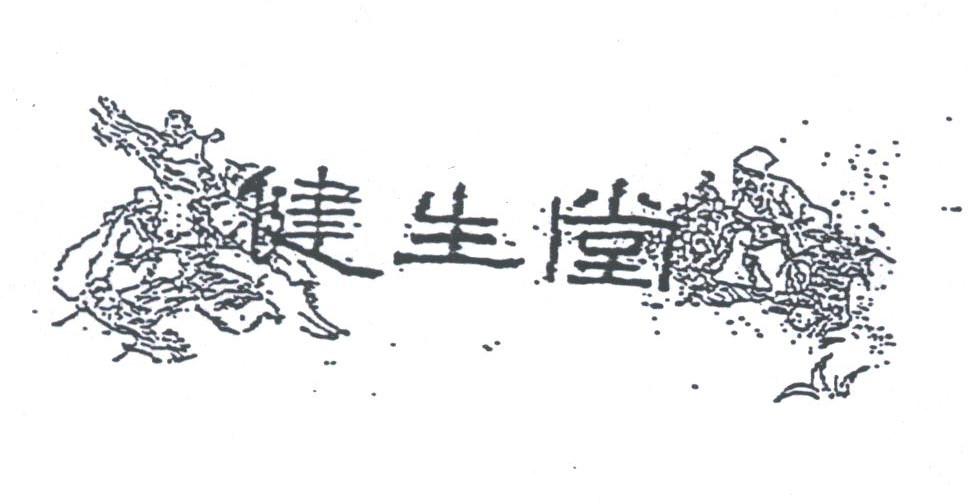 健生堂